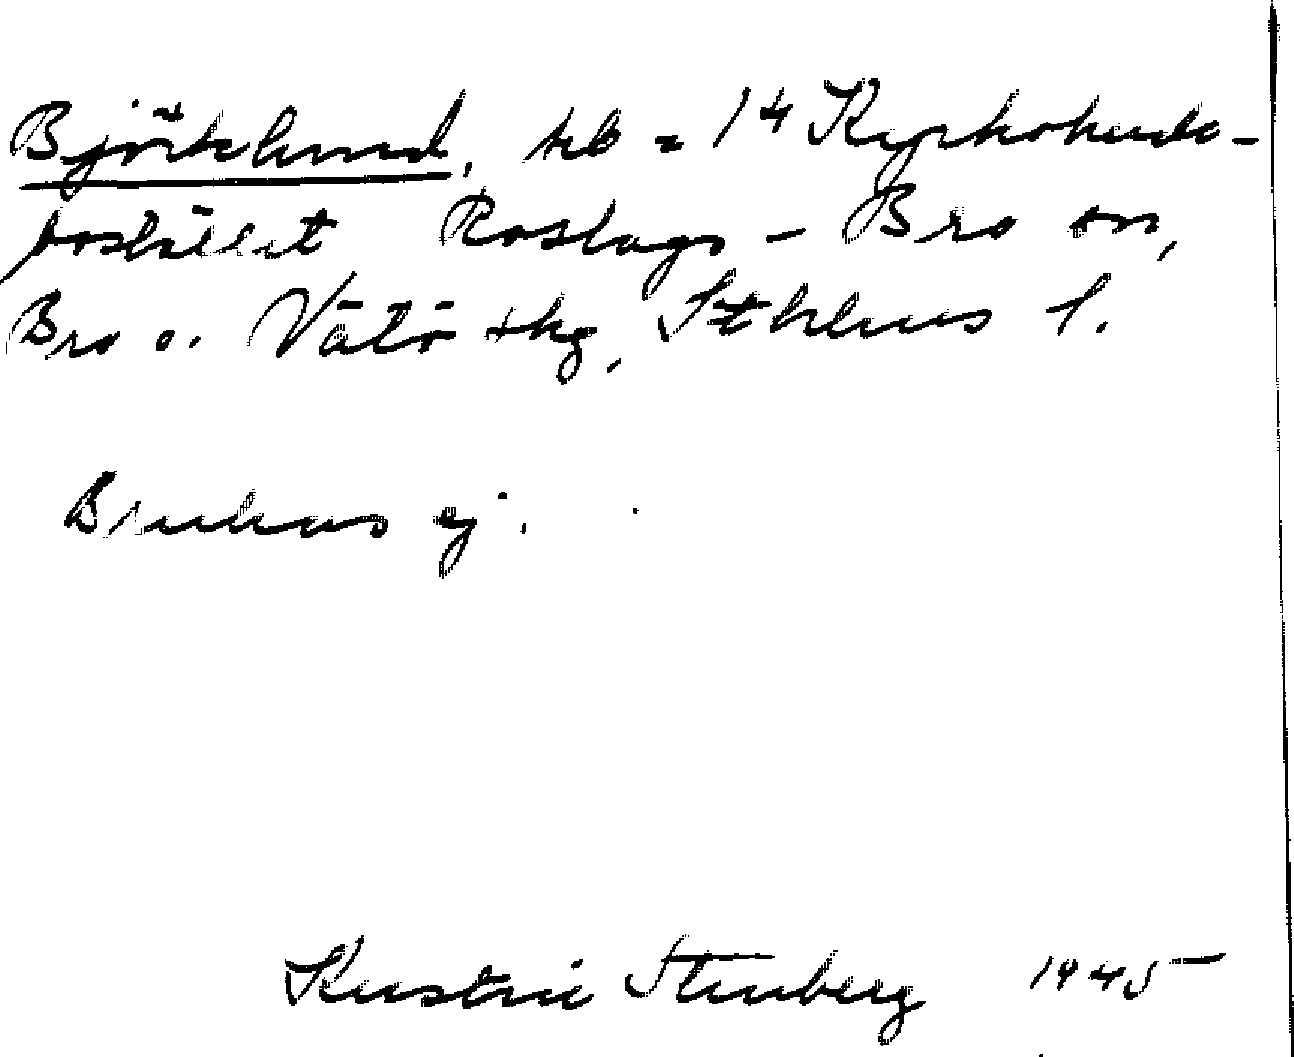 Björklund, heb = 14 Kyrkoherde-
bostället Roslags-Bro sn,
Bro o. Vätö skg, Sthlms l.
Brukas ej.
Kerstin Stenberg 1945